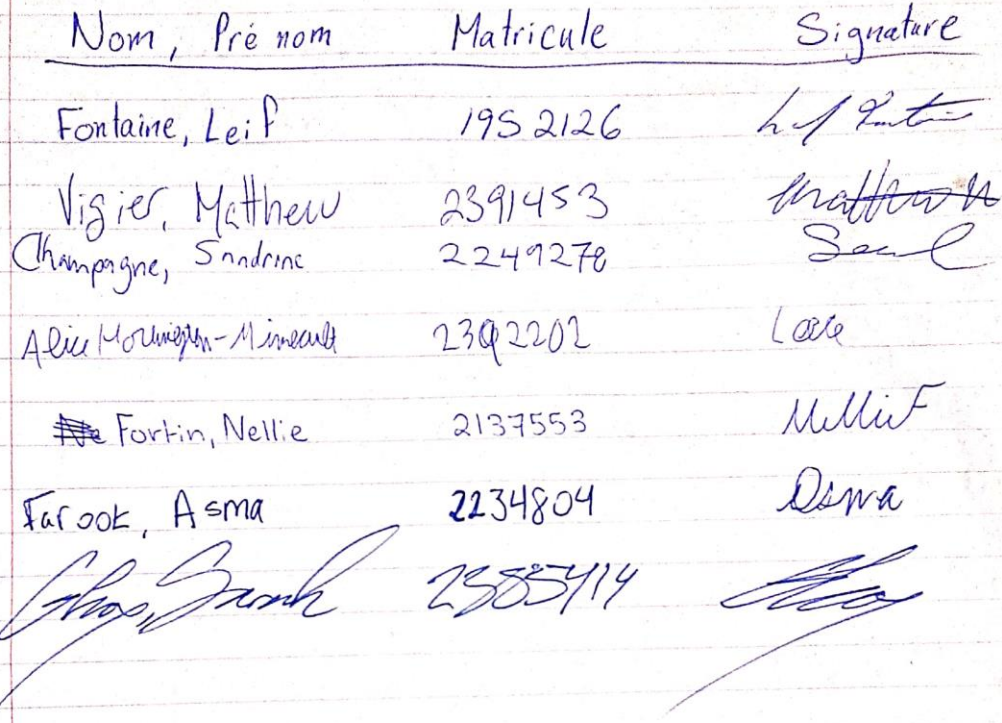 Nom, Prénom Matricule Signature
Fontaine, Leif 1952126
Vigier, Matthew 2391453 Matthew
Champagne, Sandrine 2249278
Alice -Mineault 2392202
Fortin, Nellie 2137553 Nellie F
Farook, Asma 2234804 Asma
Sarah 2385414